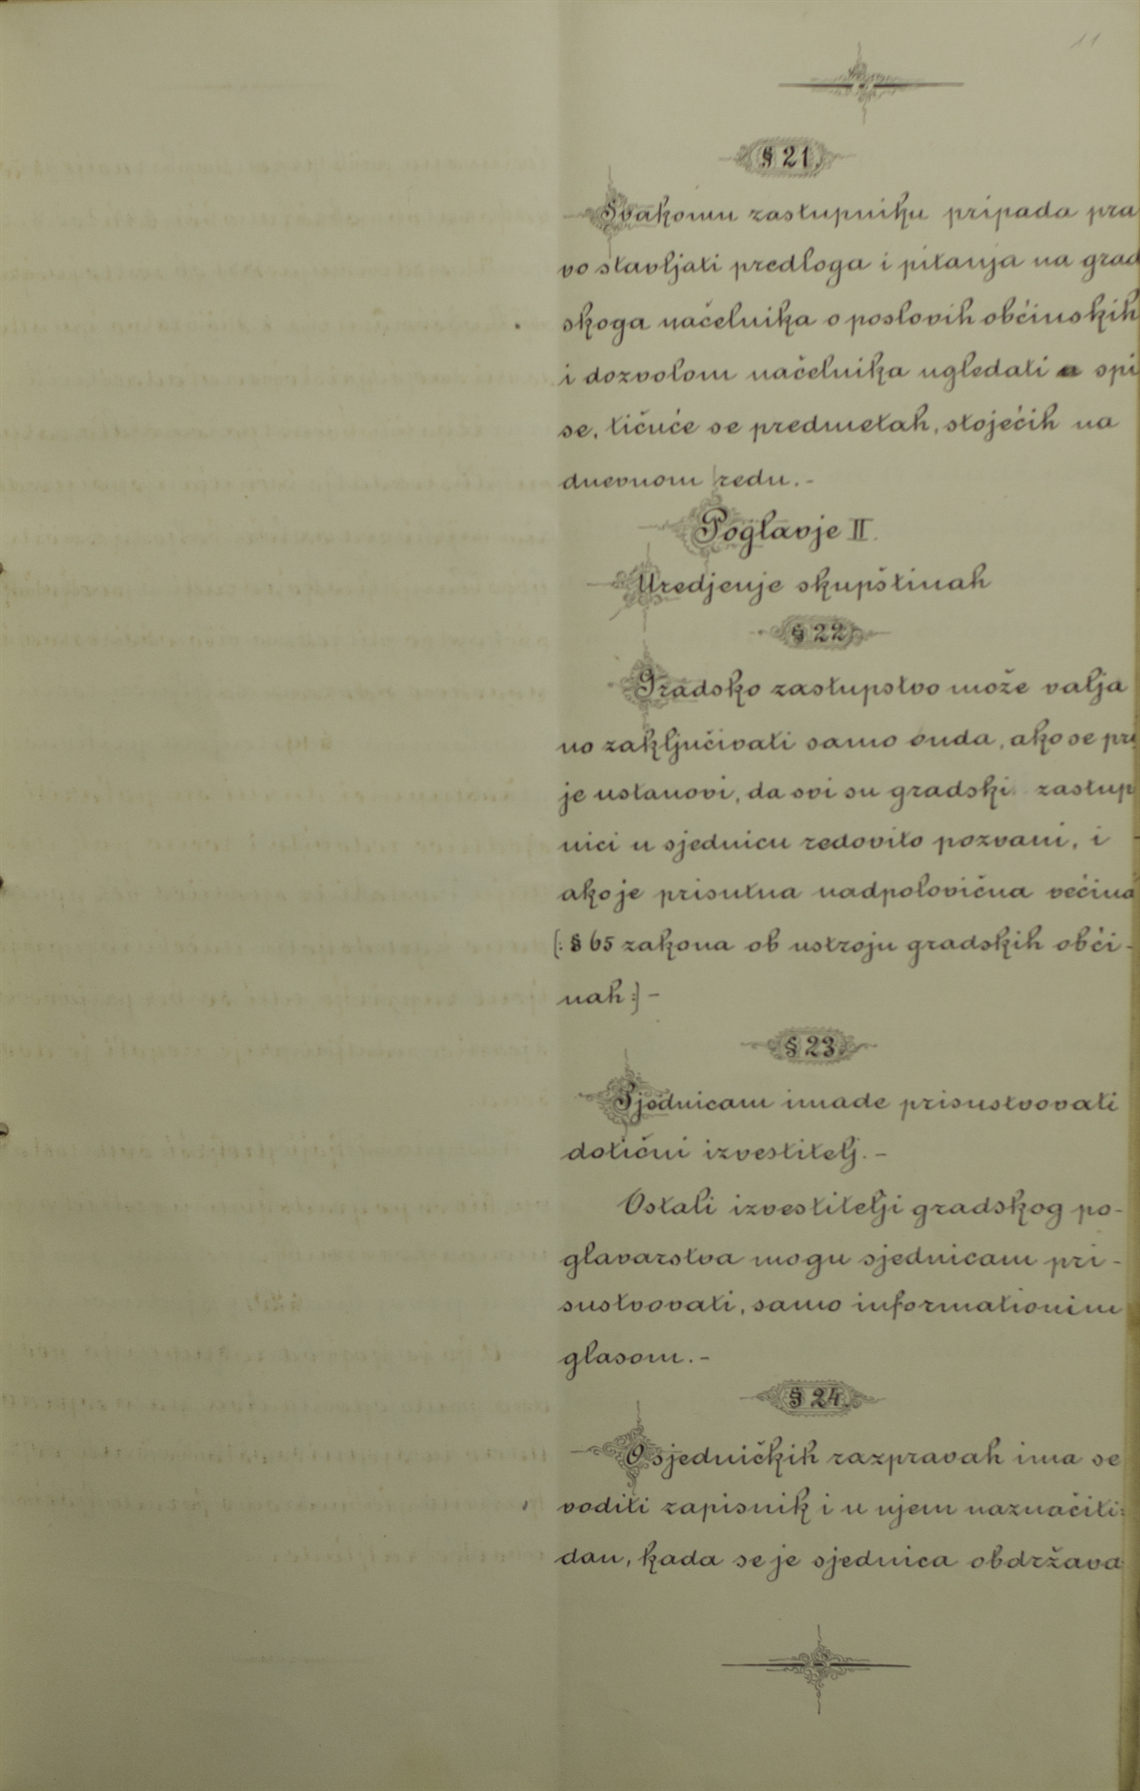 11
§ 21.
Svakomu zastupniku pripada pra
vo stavljati predloga i pitanja na grad
skoga načelnika o poslovih občinskih
i dozvolom načelnika ugledati a spi
se, tičuće se predmetah, stojećih na
dnevnom redu. -
Poglavje II.
Uredjenje skupštinah
§ 22.
Gradsko zastupstvo može valja
no zaključivati samo onda, ako se pri
je ustanovi, da svi su gradski zastup
nici u sjednicu redovito pozvani, i
ako je prisutna nadpolovična većina
(: § 65 zakona ob ustroju gradskih obći-
nah :) -
§ 23.
Sjednicam imade prisustvovati
dotični izvestitelj. -
Ostali izvestitelji gradskog po-
glavarstva mogu sjednicam pri-
sustvovati, samo informationim
glasom. -
§ 24.
O sjedničkih razpravah ima se
voditi zapisnik i u njem naznačiti:
dan, kada se je sjednica obdržava